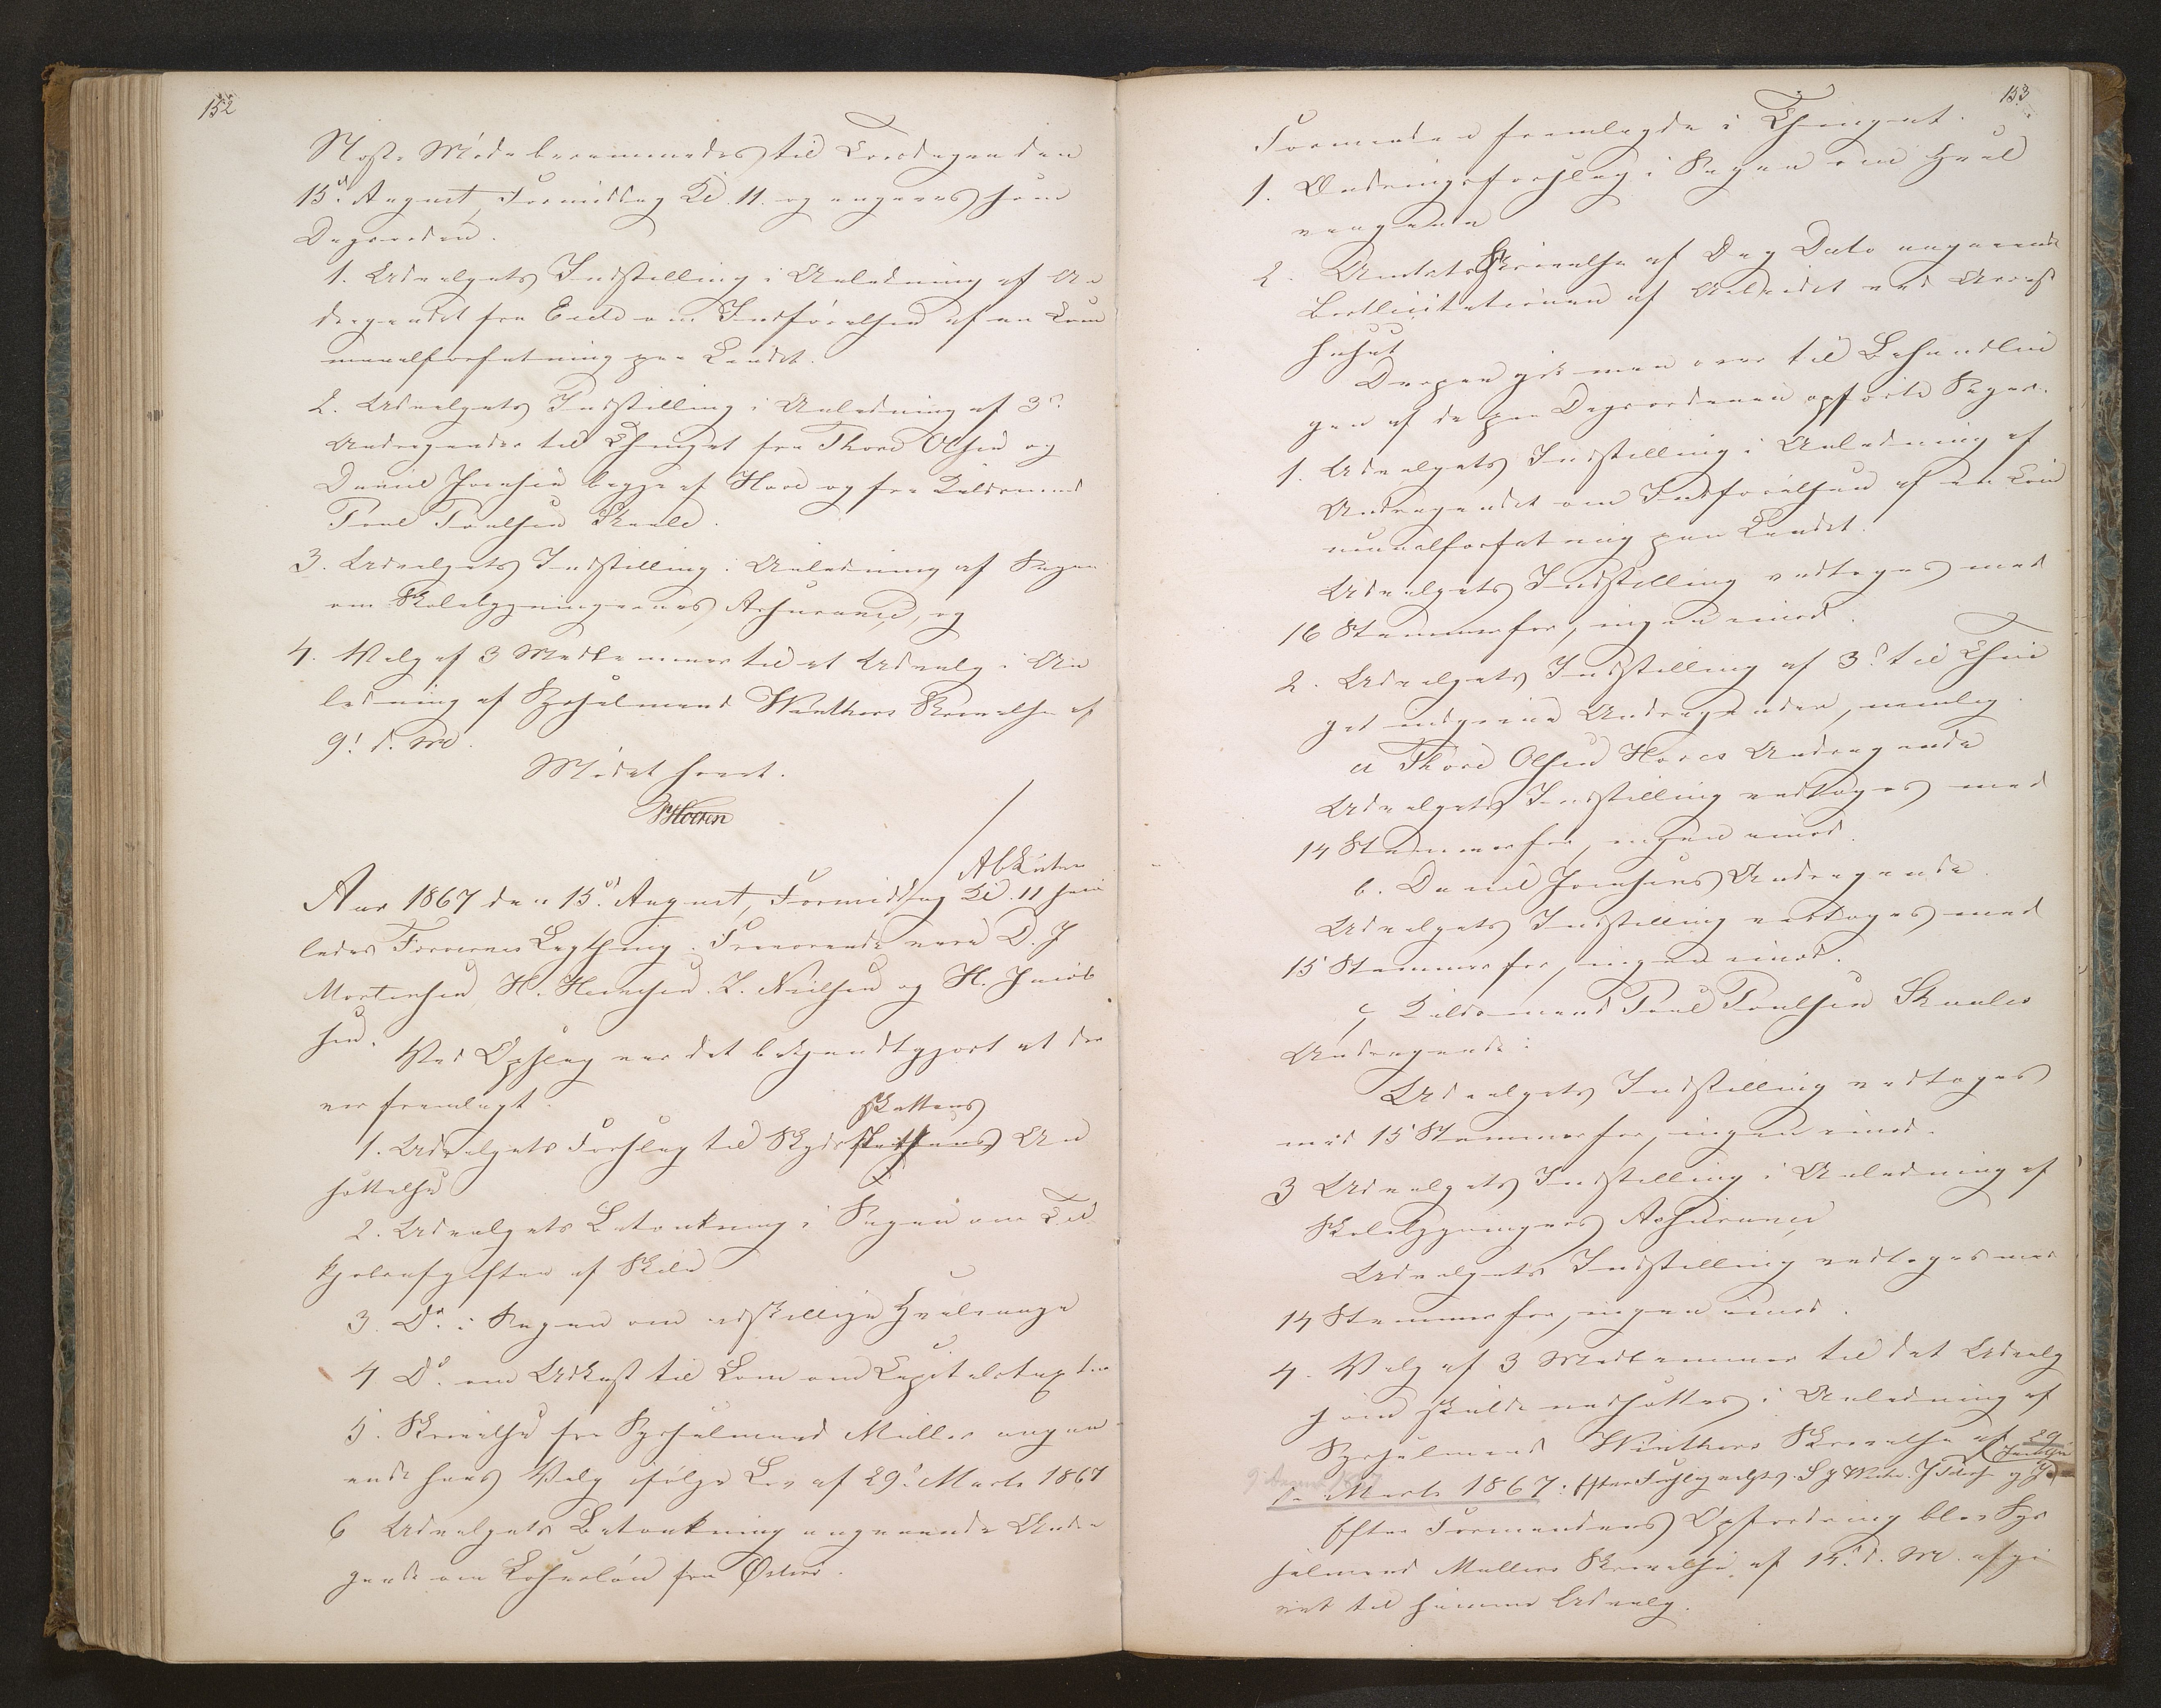 152
Næste Møde berammedes til Torsdagen den
15de August, Formiddag Kl. 11. og angaves som
Dagsorden.
1. Udvalgets Indstilling i Anledning af An
dragendet fra Eide om Indførelsen af en Com
munalforfatning paa Landet.
2. Udvalgets Indstilling i Anledning af 3de
Andragender til Thinget fra Thord Olsen og
Daniel Joensen begge af Hove og fra Kaldsmand
Poul Poulsen Skaale.
3. Udvalgets Indstilling i Anledning af Sagen
om Skolebygningernes Assurance, og
4. Valg af 3 Medlemmer til et Udvalg i An
ledning af Sysselmand Winthers Skrivelse af
9! d. M.
Mødet hævet.
Aar 1867 den 15de August, Formiddag Kl. 11 sam
ledes Færøernes Lagthing. Fraværende vare D. J
Mortensen, H. Heinesen. Z. Nielsen og H. Jacob
sen.
Ved Opslag var det bekjendtgjort at der
var fremlagt.
1. Udvalgets Forslag til Skydsskattens An
skattens
sættelse
2. Udvalgets Betænkning i Sagen om Til
kjøbsafgiften af Skibe
3. Do. i Sagen om adskillige Hvalvaage
4 Do. om Udkast til Lov om Capitalstaxter
5. Skrivelse fra Sysselmand Müller angaa
ende hans Valg ifølge Lov af 29de Marts 1867
6 Udvalgets Betænkning angaaende Andra
gende om fra Østerø.
153
Formanden fremlagde i Thinget.
1. Ændringsforslag i Sagen om Hval
vaagene
2. Amtets Skrivelse af Dags Dato angaaende
Bortlicitationen af Arbeidet ved Arrest
huset
Derpaa gik man over til Behandlin
gen af de paa Dagsordenen opførte Sager.
1. Udvalgets Indstilling i Anledning af
Andragendet om Indførelsen af en Com
munalforfatning paa Landet.
Udvalgets Indstilling vedtoges med
16 Stemmer for, ingen imod.
2. Udvalgets Indstilling af 3de til Thin
get indgivne Andragender, nemlig
a Thord Olsen Hoves Andragende
Udvalgets Indstilling vedtoges med
14 Stemmer for, ingen imod.
b. Daniel Joensens Andragende.
Udvalgets Indstilling vedtoges med
15 Stemmer for, ingen imod.
c, Kaldsmand Poul Poulsen Skaales
Andragende:
Udvalgets Indstilling vedtoges
med 15 Stemmer for, ingen imod.
3 Udvalgets Indstilling i Anledning af
Skolebygningers Assurance,
Udvalgets Indstilling vedtoges med
14 Stemmer for, ingen imod.
4. Valg af 3 Medlemmer til det Udvalg
som skulde nedsættes i Anledning af
Sysselmand Winthers Skrivelse af 29
de Marts 1867: Efter Forslag valgtes.
Efter Formandens Opfordring blev Sys
selmand Müllers Skrivelse af 14de d. M. afgi
vet til samme Udvalg.